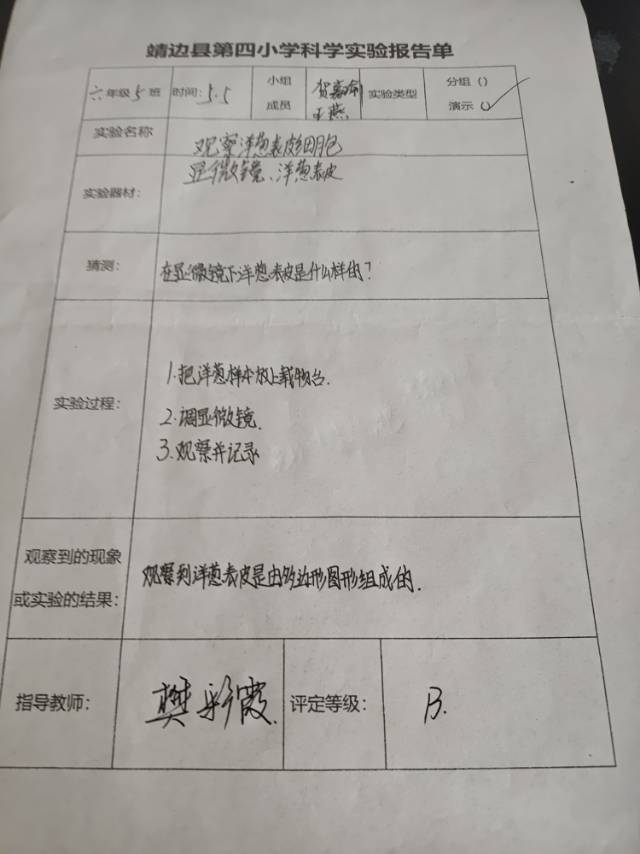 靖边县第四小学科学实验报告单
六年级5班 时间:5.5 小组成员 贺嘉 王燕 实验类型 分组() 演示()✓
实验名称 观察洋葱表皮细胞
实验器材: 显微镜、洋葱表皮
猜测: 在显微镜下洋葱表皮是什么样的?
实验过程:
1.把洋葱样本放上载物台.
2.调显微镜.
3.观察并记录
观察到的现象
或实验的结果: 观察到洋葱表皮是由多边形图形组成的.
指导教师: 樊彩霞. 评定等级: B.